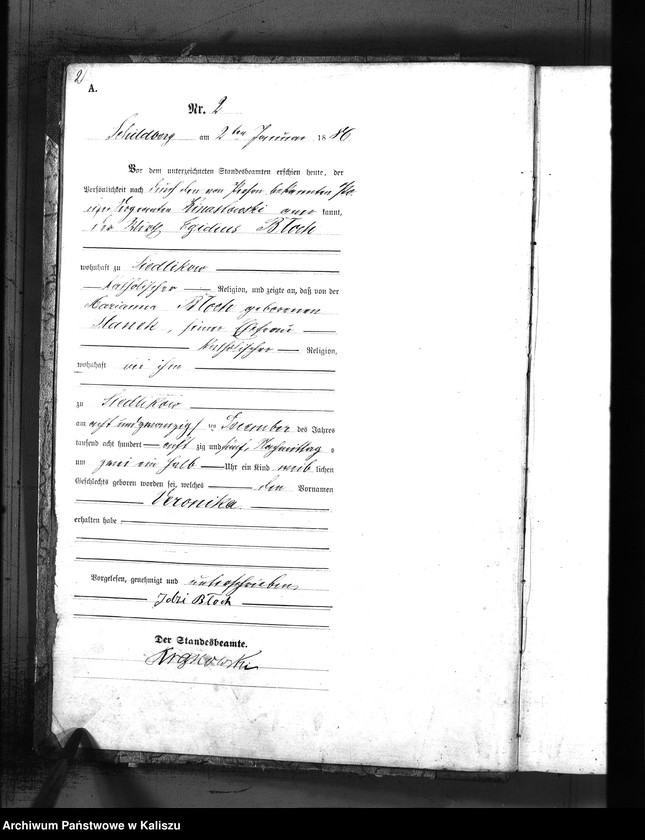 2
A.
Nr. 2
Schildberg am 2ten Januar 1886
Vor dem unterzeichneten Standesbeamten erschien heute, der
Persönlichkeit nach durch den von Person bekannten
anerkannt,
der Egidius Błoch
wohnhaft zu Siedlikow
katholischer Religion, und zeigte an, daß von der
Marianna Błoch geborenen
Stanek, seiner Ehefrau
katholischer Religion,
wohnhaft bei ihm
zu Siedlikow
am acht und zwanzigsten December des Jahres
tausend acht hundert acht zig und fünf, Nachmittag s
um zwei ein halb Uhr ein Kind weib lichen
Geschlechts geboren worden sei, welches den Vornamen
Veronika
erhalten habe
Vorgelesen, genehmigt und unterschrieben
Idzi Błoch
Der Standesbeamte.
Archiwum Państwowe w Kaliszu